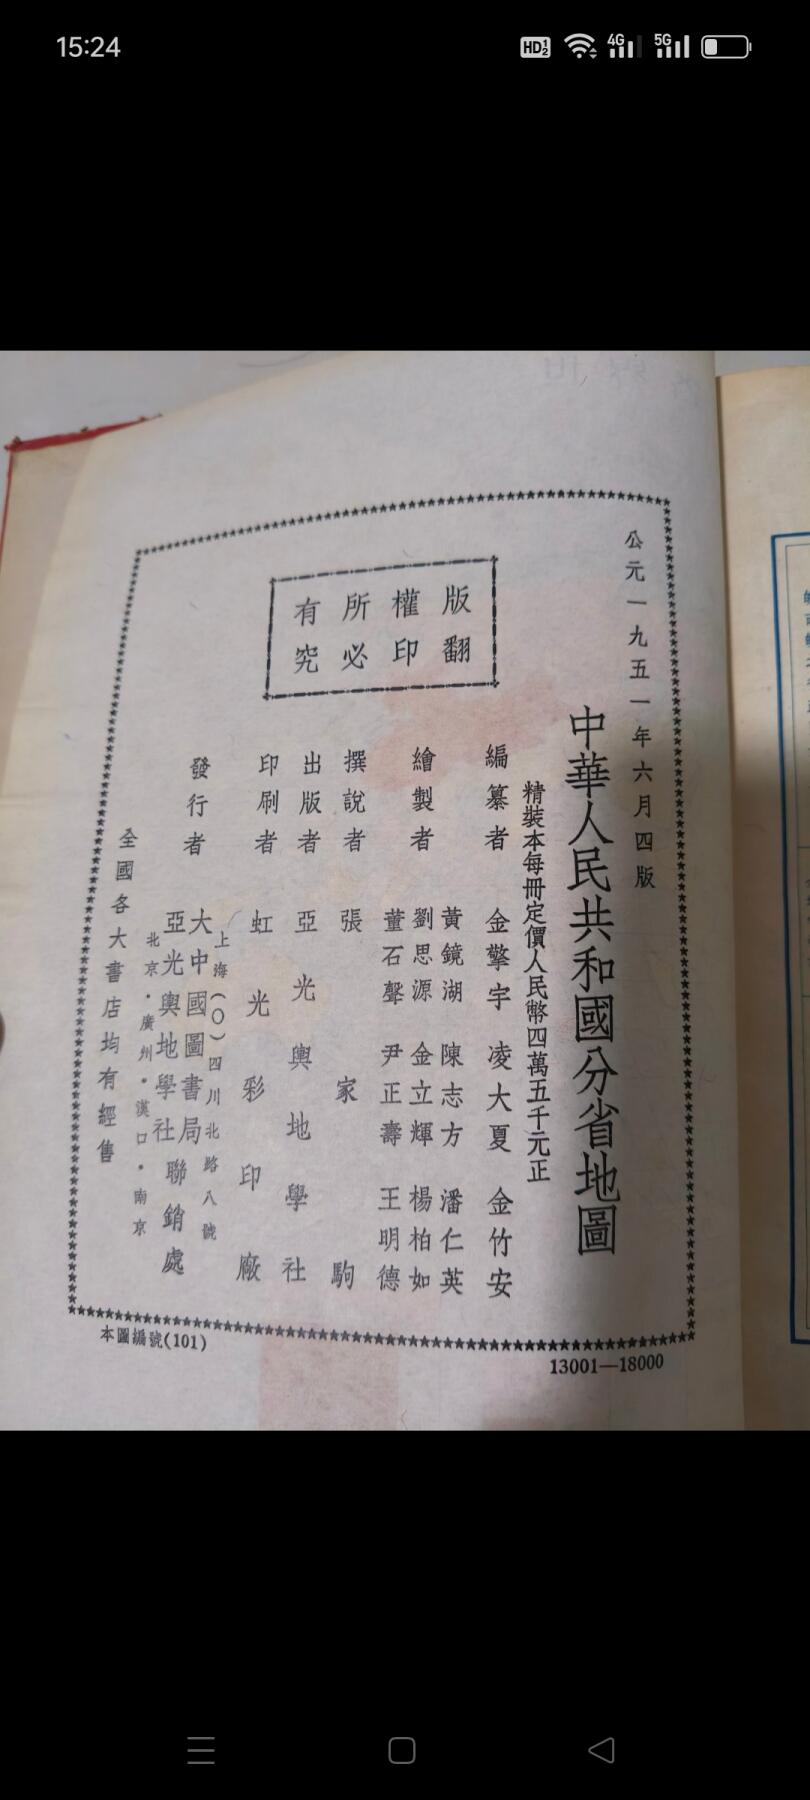 15:24
HD 1 2
4G
5G
公元一九五一年六月四版
中華人民共和國分省地圖
精裝本每冊定價人民幣四萬五千元正
版權所有
翻印必究
編纂者 金擎宇 凌大夏 金竹安
繪製者
黃鏡湖 陳志方 潘仁英
劉思源 金立輝 楊柏如
董石聲 尹正壽 王明德
撰說者 張家駒
出版者 亞光輿地學社
印刷者 虹光彩印廠
發行者
上海(〇)四川北路八號
大中國圖書局
亞光輿地學社
聯銷處
北京·廣州·漢口·南京
全國各大書店均有經售
本圖編號(101)
13001—18000